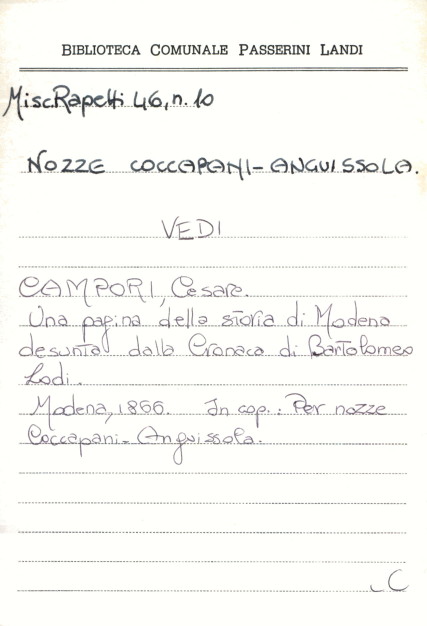 BIBLIOTECA COMUNALE PASSERINI LANDI
Misc.Rapetti 46, n. 10
NOZZE COCCAPANI-ANGUISSOLA.
VEDI
CAMPORI, Cesare.
Una pagina della storia di Modena
desunta dalla Cronaca di Bartolomeo
Lodi.
Modena, 1866. In cop.: Per nozze
Coccapani-Anguissola.